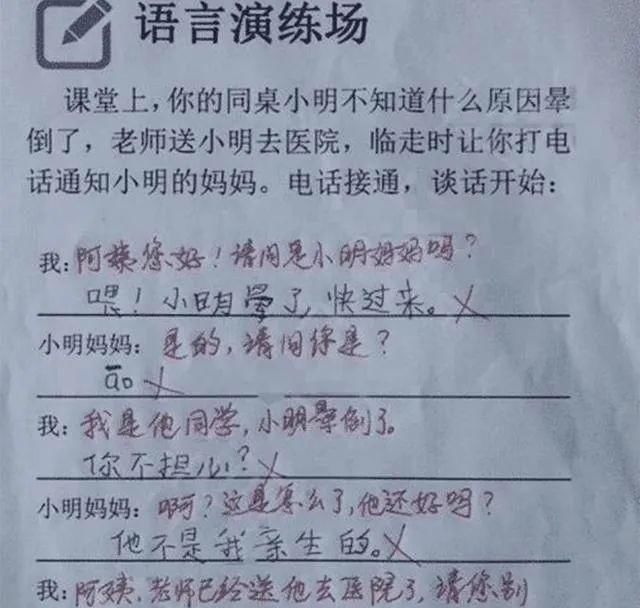 语言演练场
课堂上,你的同桌小明不知道什么原因晕
倒了,老师送小明去医院,临走时让你打电
话通知小明的妈妈。电话接通,谈话开始:
我:阿姨您好!请问是小明妈妈吗?
喂!小明晕了,快过来。
小明妈妈:是的,请问你是?
āo
我:我是他同学,小明晕倒了。
你不担心?
小明妈妈:啊?这是怎么了,他还好吗?
他不是我亲生的。
我:阿姨,老师已经送他去医院了,请您别